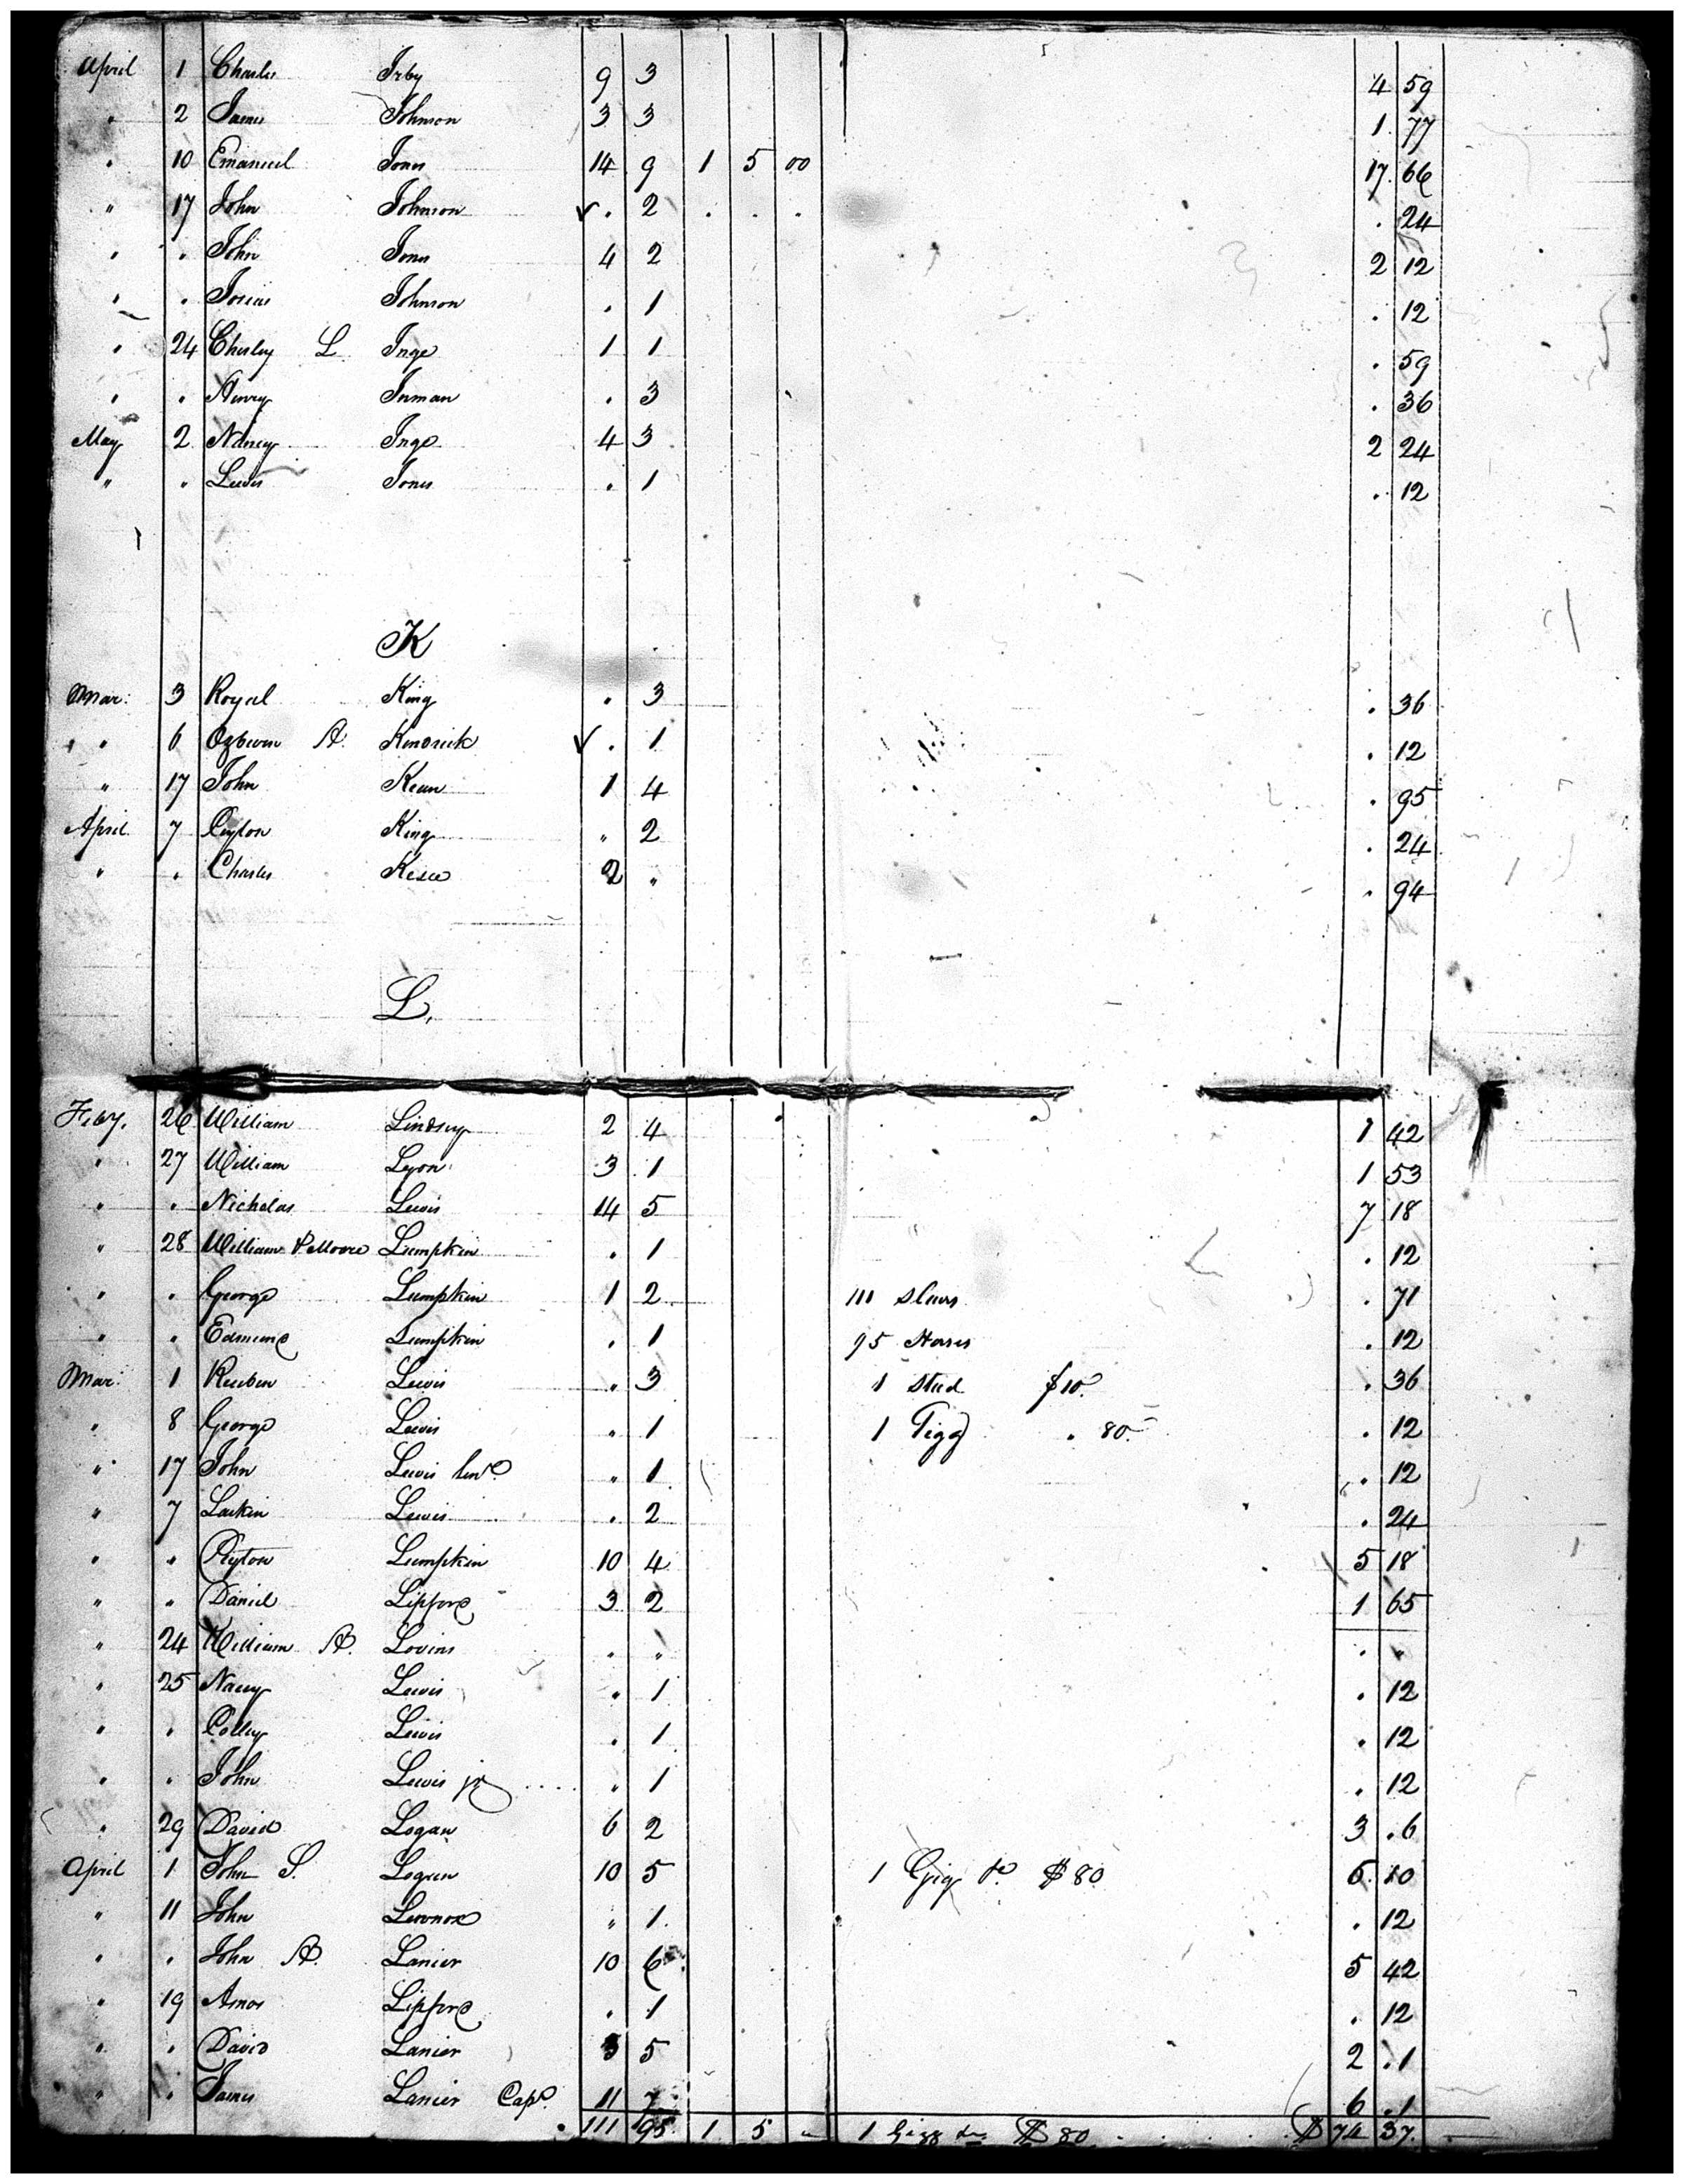 April 1 Charles Irby 9 3 4 59
" 2 James Johnson 3 3 1 77
" 10 Emanuel Jones 14 9 1 5 00 17 66
" 17 John Johnson √ . 2 . . . . 24
" " John Jones 4 2 2 12
" " Josias Johnson . 1 . 12
" 24 Chesley L Inge 1 1 . 59
" " Henry Inman . 3 . 36
May 2 Nancy Inge 4 3 2 24
" " Lewis Jones . 1 . 12
K
Mar: 3 Royal King . 3 . 36
" 6 A. Kendrick √ . 1 . 12
" 17 John Keen 1 4 . 95
April 7 King " 2 . 24
" " Charles Kesee 2 " . 94
L.
Feby. 26 William Lindsey 2 4 1 42
" 27 William Lyon 3 1 1 53
" " Nicholas Lewis 14 5 7 18
" 28 William Lumpkin . 1 . 12
" " George Lumpkin 1 2 111 slaves . 71
" " Edmund Lumpkin . 1 95 Horses . 12
Mar: 1 Reuben Lewis " 3 1 stud $10. . 36
" 8 George Lewis " 1 1 Gigg " 80. . 12
" 17 John Lewis " 1 . 12
" 7 Larkin Lewis . 2 . 24
" " Peyton Lumpkin 10 4 5 18
" " Daniel Lipford 3 2 1 65
" 24 William A. Lovins " " . "
" 25 Nancy Lewis " 1 . 12
" " Polly Lewis . 1 . 12
" " John Lewis jr " 1 . 12
" 29 David Logan 6 2 3 .6
April 1 John S. Logan 10 5 1 Gig do $80 6 10
" 11 John " 1 . 12
" " John A. Lanier 10 6 5 42
" 19 Amos Lipford . 1 . 12
" " David Lanier 3 5 2 .1
" " James Lanier Capt. 11 7 6 .1
111 95 1 5 - 1 Gigg do $80 $ 74 37